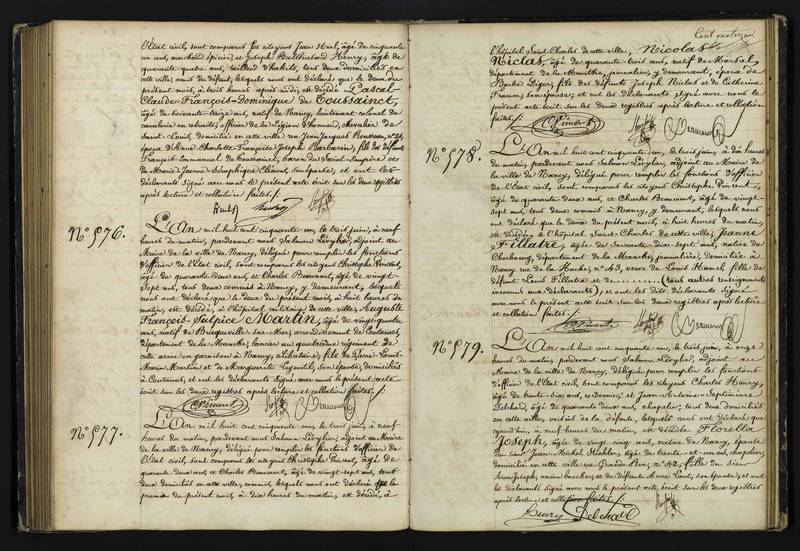 l'État civil, sont comparus les citoyens Jean Huel, âgé de cinquante
un ans, marchand épicier, et Joseph Balthasard Henry, âgé de
quarante-quatre ans, tailleur d'habits, tous deux domiciliés en
cette ville, amis du défunt, lesquels nous ont déclaré que le deux du
présent mois, à huit heures après midi, est décédé Pascal-
Claude-François-Dominique de Toussainct,
âgé de soixante-seize ans, natif de Nancy, lieutenant-colonel de
cavalerie en retraite, officier de la Légion d'honneur, chevalier de
Saint-Louis, domicilié en cette ville rue Jean Jacques Rousseau, n°
époux d'Anne Charlotte-Françoise-Joseph Barbarin, fils des défunts
François-Emmanuel de Toussainct, baron du Saint-Empire et
de Marie-Jeanne-Séraphique Clément, son épouse, et ont les
déclarants signé avec nous le présent acte écrit sur les deux registres
après lecture et collation faites ./.
N° 576.
L'An mil huit cent cinquante-un, le trois juin, à neuf
heures du matin, pardevant nous Salmon Lévylier, adjoint au
Maire de la ville de Nancy, délégué pour remplir les fonctions
d'officier de l'État civil, sont comparus les citoyens Christophe Vincent,
âgé de quarante-deux ans, et Charles Beaucourt, âgé de vingt-
sept ans, tous deux commis à Nancy, y demeurant, lesquels
nous ont déclaré que le deux du présent mois, à huit heures du
matin, est décédé, à l'hôpital militaire de cette ville, Auguste
François-Sulpice Martin, âgé de vingt-quatre
ans, natif de Bricqueville-sur-Mer, arrondissement de Coutances,
département de la Manche, lancier au quatrième régiment de
cette arme en garnison à Nancy, célibataire, fils de Pierre-Louis-
Marin Martin et de Marguerite Legentil, son épouse, domiciliés
à Coutances, et ont les déclarants signé avec nous le présent acte
écrit sur les deux registres après lecture et collation faites ./.
CVincent
N° 577.
L'An mil huit cent cinquante-un, le trois juin, à neuf
heures du matin, pardevant nous Salmon Lévylier, adjoint au Maire
de la ville de Nancy, délégué pour remplir les fonctions d'officier de
l'État civil, sont comparus les citoyens Christophe Vincent, âgé de
quarante-deux ans et Charles Beaucourt, âgé de vingt-sept ans, tous
deux domiciliés en cette ville, commis, lesquels nous ont déclaré que le
premier du présent mois, à dix heures du matin, est décédé, à
Cent quatorze
l'hôpital Saint-Charles de cette ville, Nicolas
Niclas, âgé de quarante-trois ans, natif de Marsal,
département de la Meurthe, journalier, y demeurant, époux de
Barbe Giger, fils des défunts Joseph Niclas et de Catherine
son épouse; et ont les déclarants signé avec nous le
présent acte écrit sur les deux registres après lecture et collation
faites ./.
CVincent
N° 578.
L'An mil huit cent cinquante-un, le trois juin, à dix heures
du matin, pardevant nous Salmon Lévylier, adjoint au Maire de
la ville de Nancy, délégué pour remplir les fonctions d'officier
de l'État civil, sont comparus les citoyens Christophe Vincent,
âgé de quarante-deux ans, et Charles Beaucourt, âgé de vingt-
sept ans, tous deux commis à Nancy, y demeurant, lesquels nous
ont déclaré que le deux du présent mois, à huit heures du matin,
est décédée, à l'hôpital Saint-Charles de cette ville, Jeanne
Fillatre, âgée de soixante-dix-sept ans, native de
Cherbourg, département de la Manche, journalière, domiciliée à
Nancy rue de la Hache, n° 43, veuve de Louis Hamel, fille de
défunt Louis Fillatre et de ......... (tous autres renseignements
inconnus aux déclarants); et ont les dits déclarants signé
avec nous le présent acte écrit sur les deux registres après lecture
et collation faites ./.
CVincent
N° 579.
L'An mil huit cent cinquante-un, le trois juin, à onze
heures du matin, pardevant nous Salmon Lévylier, adjoint au
Maire de la ville de Nancy, délégué pour remplir les fonctions
d'officier de l'État civil, sont comparus les citoyens Charles Henry,
âgé de trente-dix ans, cordonnier, et Jean-Antoine-Septiminie
Lebhard, âgé de quarante-deux ans, chapelier, tous deux domiciliés
en cette ville, voisins de la défunte, lesquels nous ont déclaré que
aujourd'hui, à neuf heures du matin, est décédée Florella
Joseph, âgée de vingt-cinq ans, native de Nancy, épouse
du sieur Jean-Michel Kiehler, âgé de trente-et-un ans, chapelier,
domiciliée en cette ville rue Grande Rue, n° 42, fille du sieur
Joseph, ancien boucher, et de défunte Anne Laut, son épouse; et ont
les déclarants signé avec nous le présent acte écrit sur les deux registres
après lecture et collation faites ./.
Henry